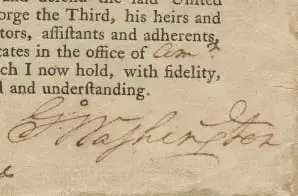 and defend the said United
orge the Third, his heirs and
tors, aſſiſtants and adherents,
cates in the office of
ch I now hold, with fidelity,
l and underſtanding.
Go Waſhington